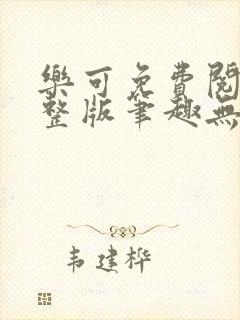 樂可免費閱
整版筆趣無
韦建桦